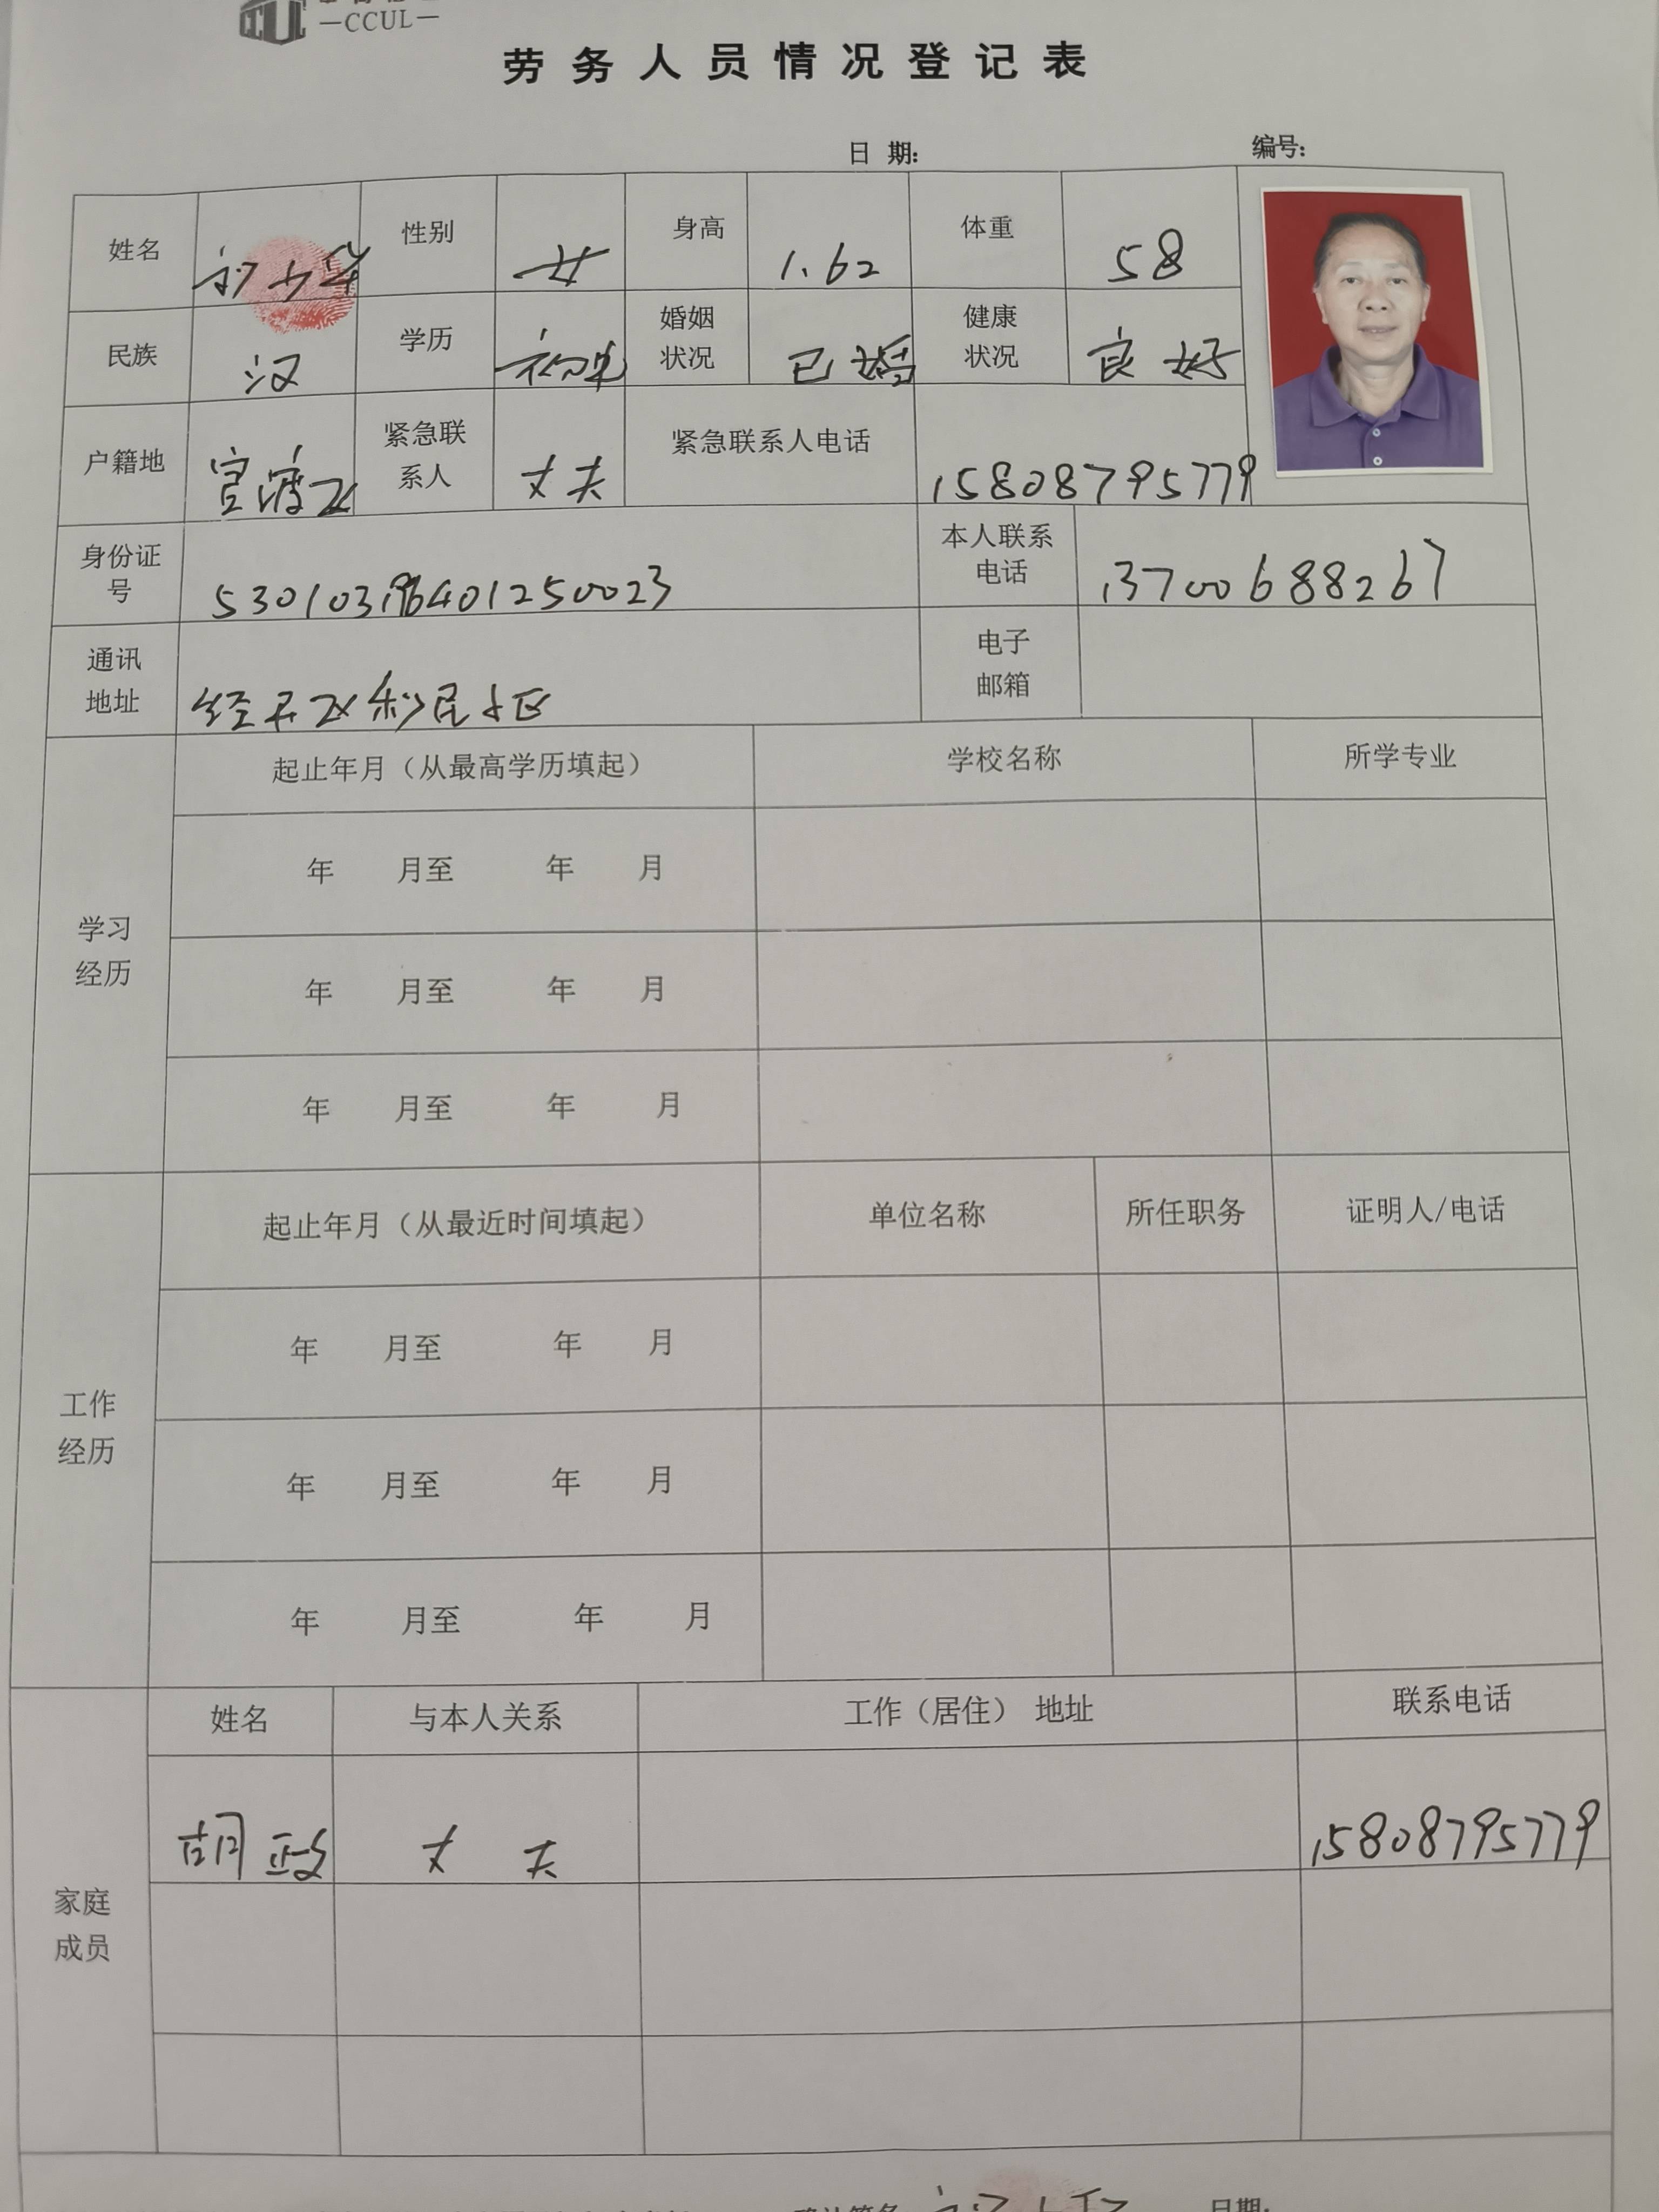 —CCUL—
劳务人员情况登记表
日 期： 编号：
姓名 性别 女 身高 1.62 体重 58
民族 汉 学历 初中 婚姻状况 已婚 健康状况 良好
户籍地 官渡区 紧急联系人 丈夫 紧急联系人电话 15808795779
身份证号 530103196401250023 本人联系电话 13700688267
通讯地址 经开区 民小区 电子邮箱
学习经历 起止年月（从最高学历填起） 学校名称 所学专业
年 月至 年 月
年 月至 年 月
年 月至 年 月
工作经历 起止年月（从最近时间填起） 单位名称 所任职务 证明人/电话
年 月至 年 月
年 月至 年 月
年 月至 年 月
家庭成员 姓名 与本人关系 工作（居住） 地址 联系电话
胡政 丈夫 15808795779
日期：